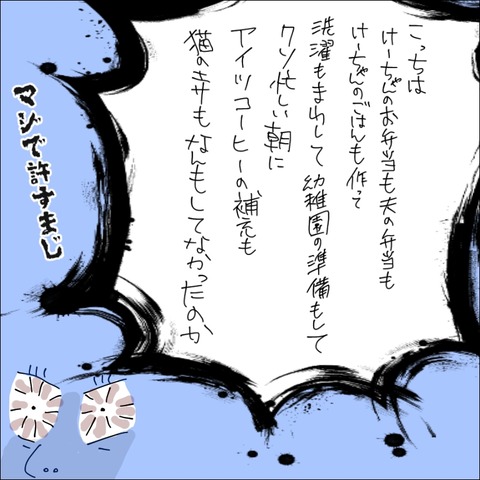 こっちは
けーちゃんのお弁当も夫の弁当も
けーちゃんのごはんも作って
洗濯もまわして幼稚園の準備もして
クソ忙しい朝に
アイツコーヒーの補充も
猫のキサもなんもしてなかったのか
マジで許すまじ